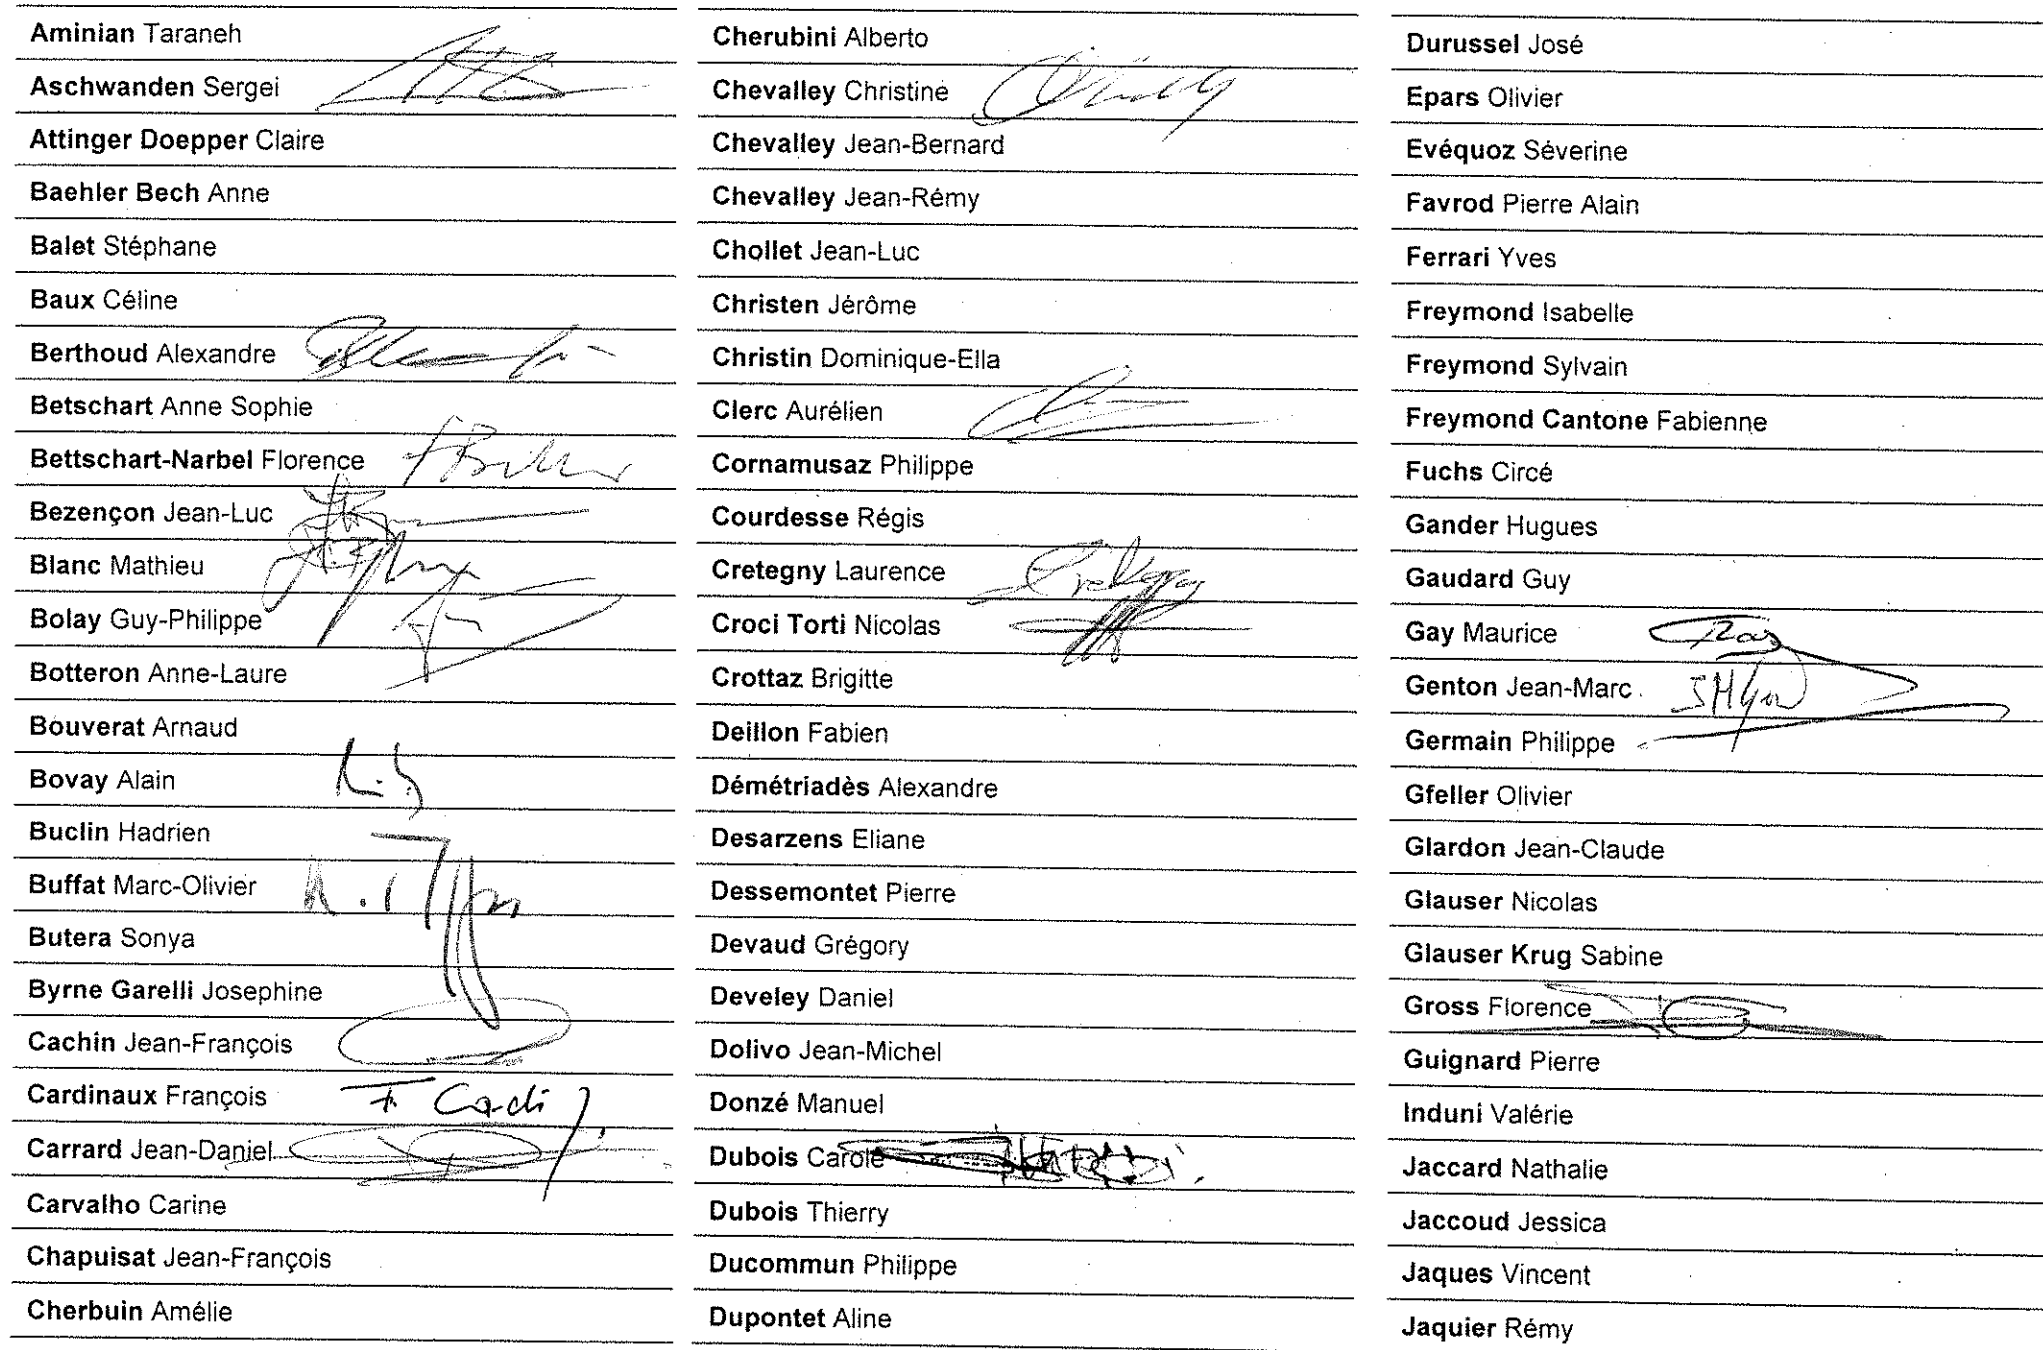 Aminian Taraneh
Aschwanden Sergei
Attinger Doepper Claire
Baehler Bech Anne
Balet Stéphane
Baux Céline
Berthoud Alexandre
Betschart Anne Sophie
Bettschart-Narbel Florence
Bezençon Jean-Luc
Blanc Mathieu
Bolay Guy-Philippe
Botteron Anne-Laure
Bouverat Arnaud
Bovay Alain
Buclin Hadrien
Buffat Marc-Olivier
Butera Sonya
Byrne Garelli Josephine
Cachin Jean-François
Cardinaux François
Carrard Jean-Daniel
Carvalho Carine
Chapuisat Jean-François
Cherbuin Amélie
Cherubini Alberto
Chevalley Christine
Chevalley Jean-Bernard
Chevalley Jean-Rémy
Chollet Jean-Luc
Christen Jérôme
Christin Dominique-Ella
Clerc Aurélien
Cornamusaz Philippe
Courdesse Régis
Cretegny Laurence
Croci Torti Nicolas
Crottaz Brigitte
Deillon Fabien
Démétriadès Alexandre
Desarzens Eliane
Dessemontet Pierre
Devaud Grégory
Develey Daniel
Dolivo Jean-Michel
Donzé Manuel
Dubois Carole
Dubois Thierry
Ducommun Philippe
Dupontet Aline
Durussel José
Epars Olivier
Evéquoz Séverine
Favrod Pierre Alain
Ferrari Yves
Freymond Isabelle
Freymond Sylvain
Freymond Cantone Fabienne
Fuchs Circé
Gander Hugues
Gaudard Guy
Gay Maurice
Genton Jean-Marc
Germain Philippe
Gfeller Olivier
Glardon Jean-Claude
Glauser Nicolas
Glauser Krug Sabine
Gross Florence
Guignard Pierre
Induni Valérie
Jaccard Nathalie
Jaccoud Jessica
Jaques Vincent
Jaquier Rémy